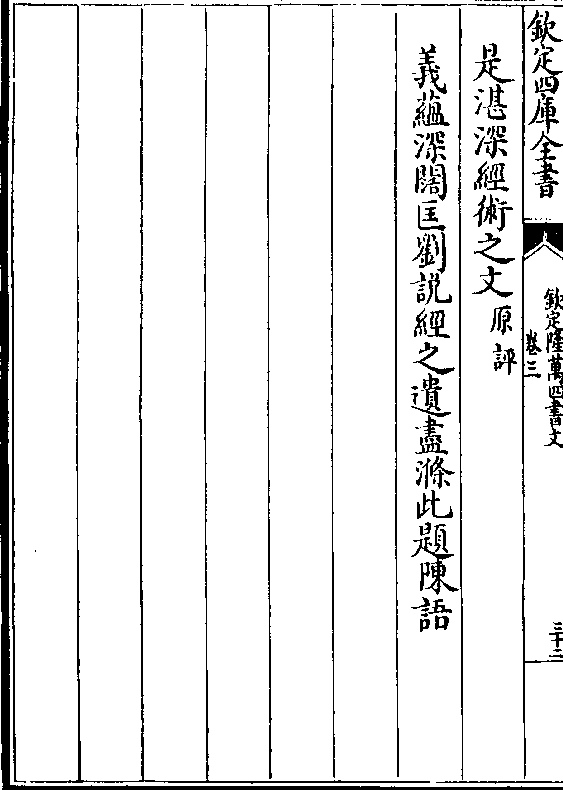 欽定四庫全書
欽定隆萬四書文
卷三
三十二
是湛深經術之文原評
義蘊深闊匡劉說經之遺盡滌此題陳語